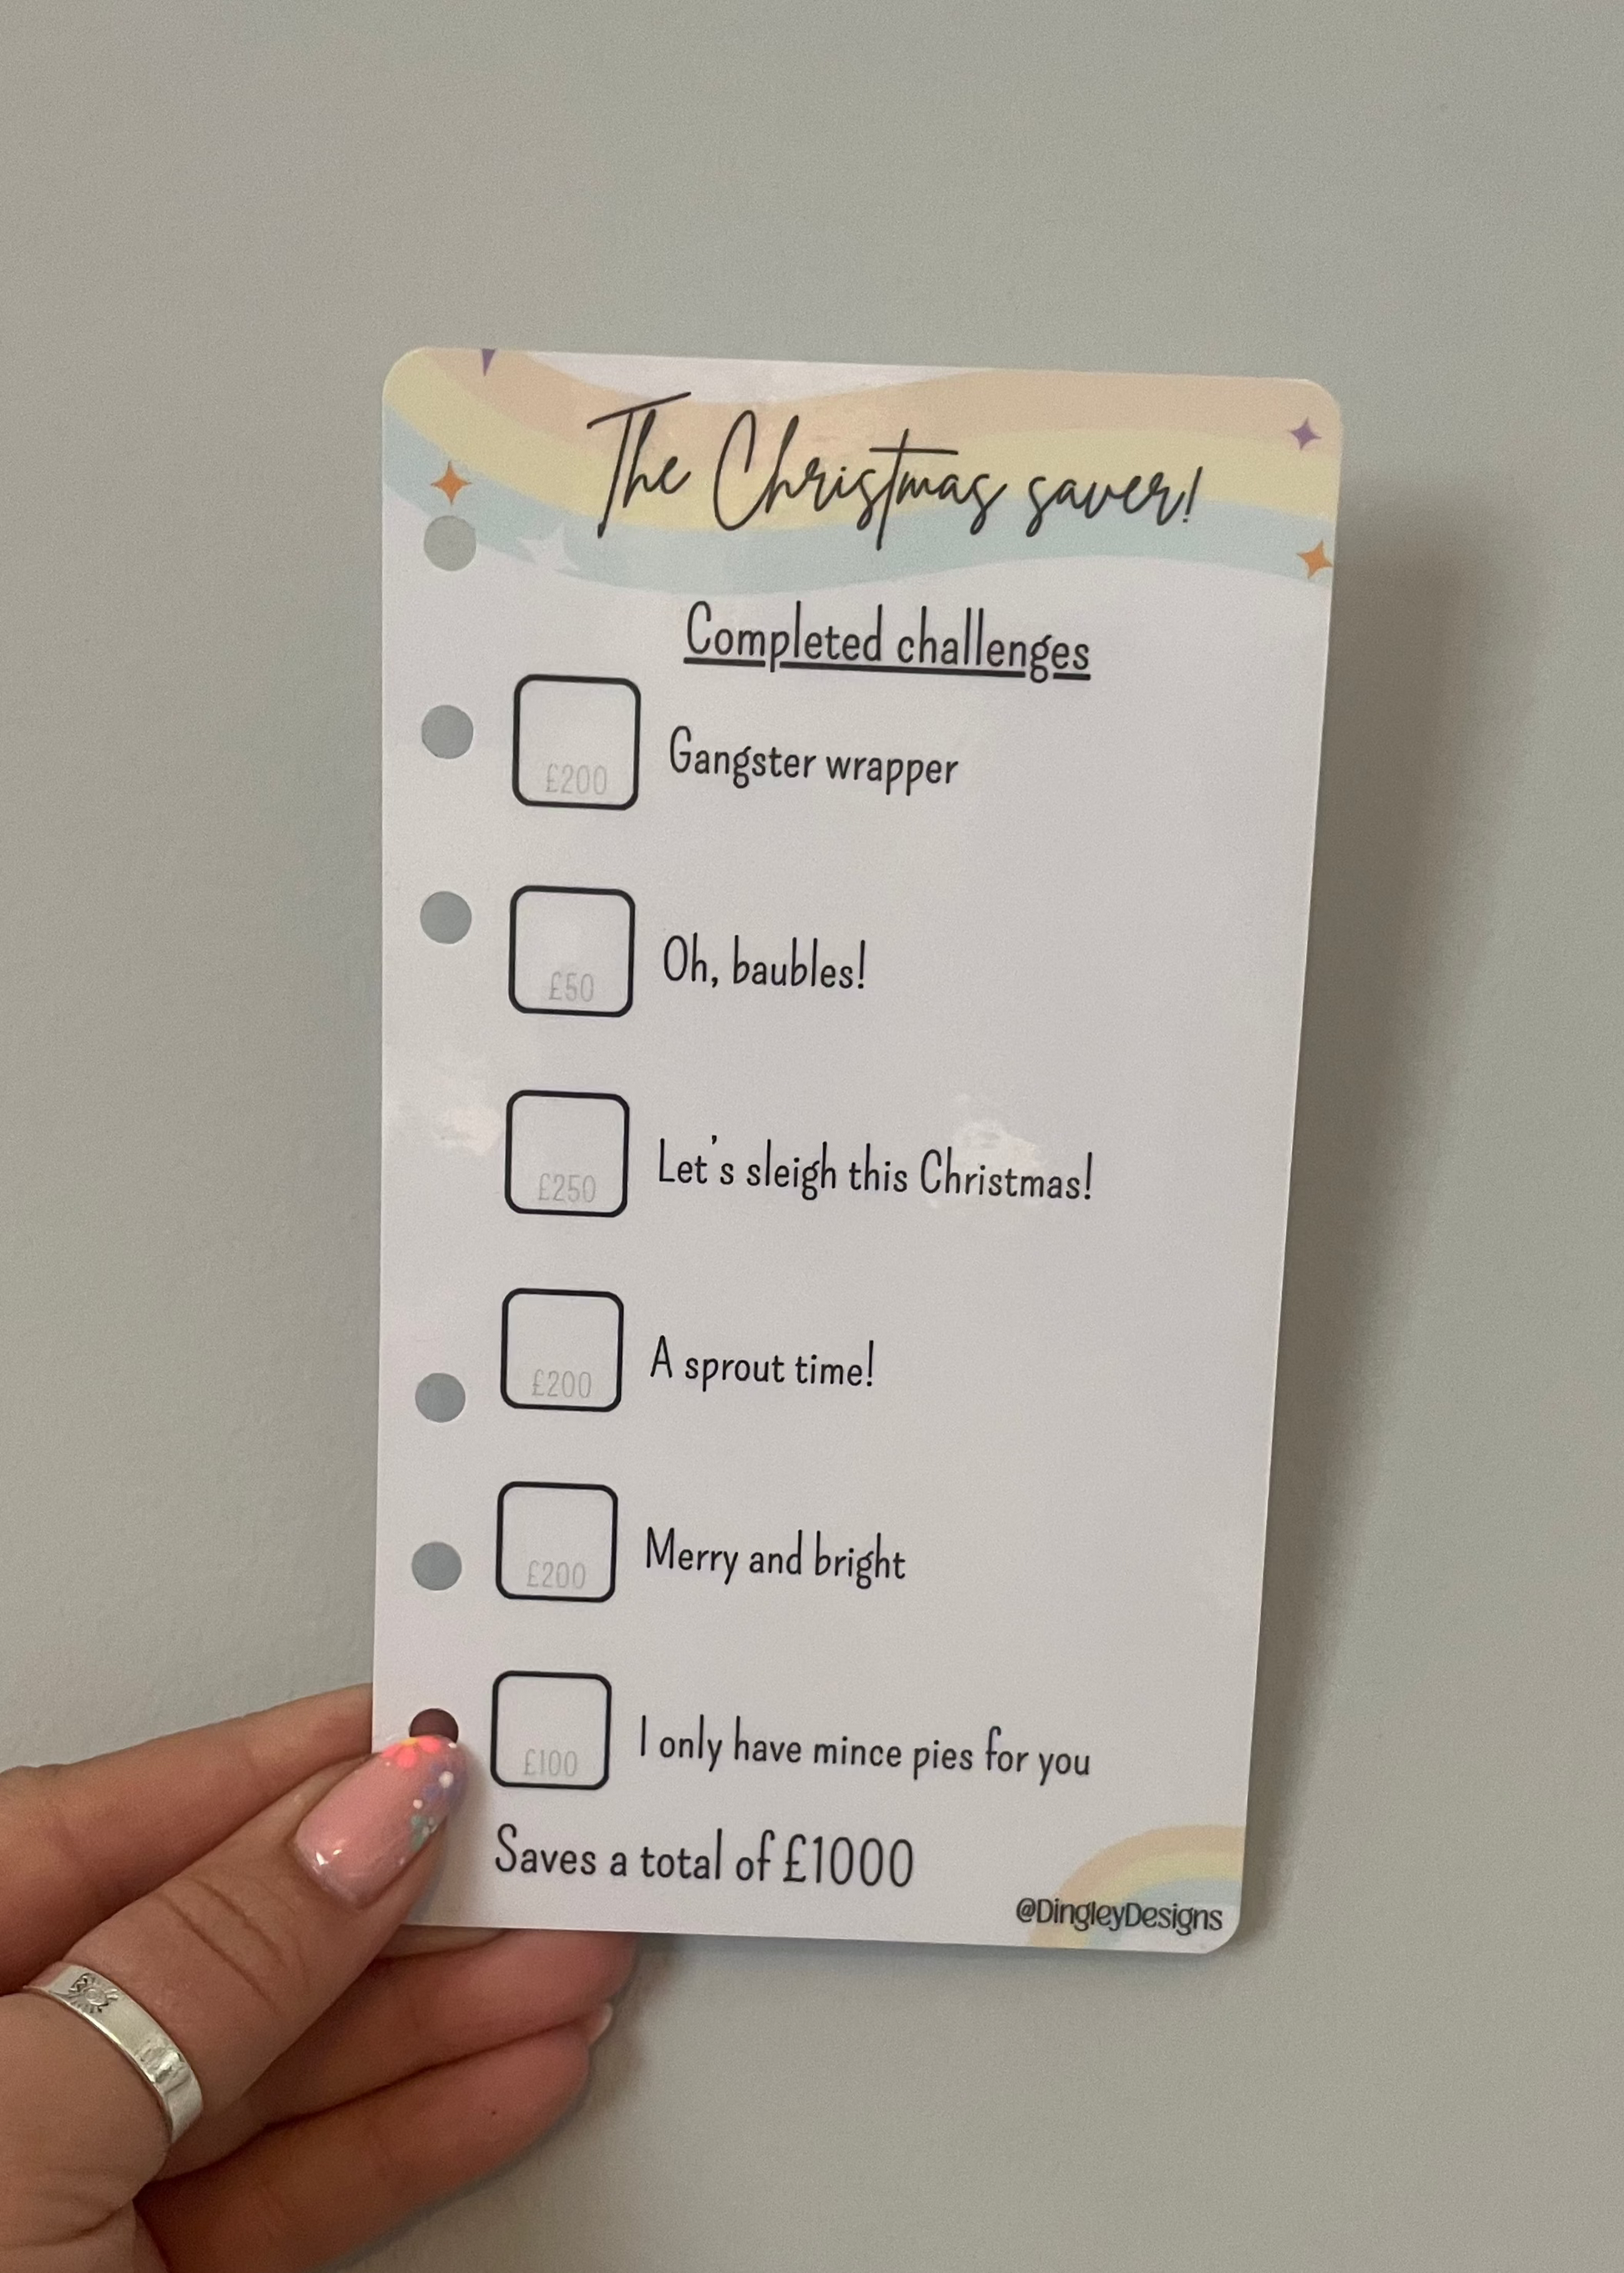 The Christmas saver!
Completed challenges
£200 Gangster wrapper
£50 Oh, baubles!
£250 Let's sleigh this Christmas!
£200 A sprout time!
£200 Merry and bright
£100 I only have mince pies for you
Saves a total of £1000
@DingleyDesigns